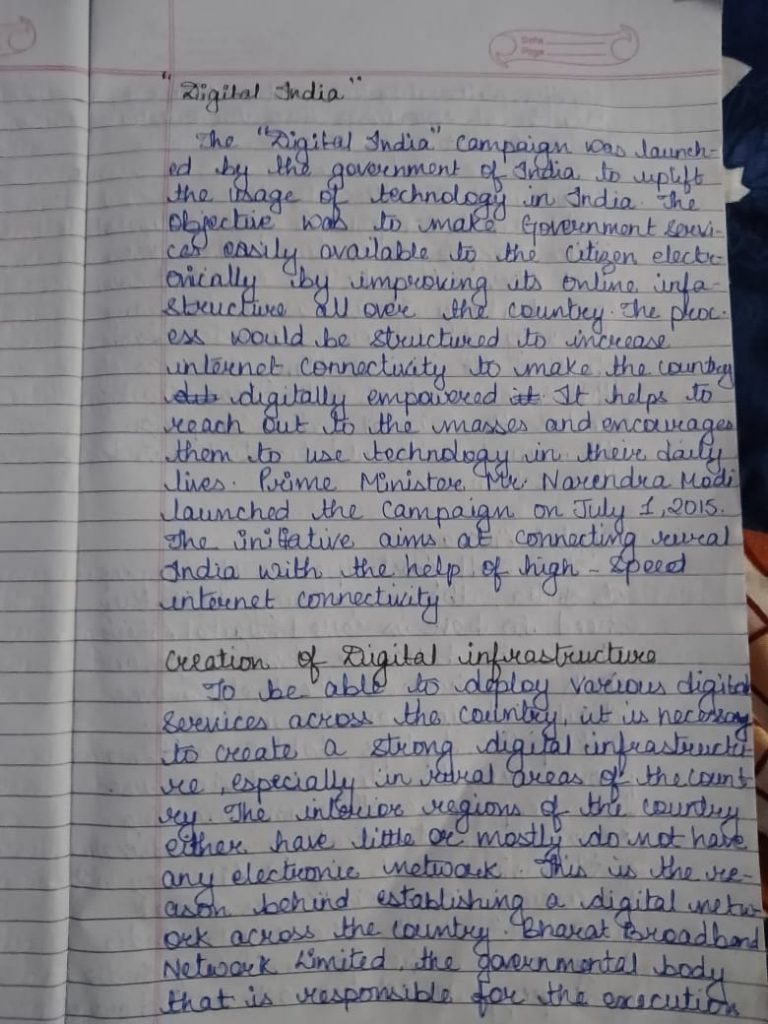 Date
Page
"Digital India"
The "Digital India" campaign was launch-
ed by the government of India to uplift
the image of technology in India. The
objective was to make Government servi-
ces easily available to the citizen electr-
onically by improving its online infa-
structure all over the country. The proc-
ess would be structured to increase
internet connectivity to make the country
digitally empowered It helps to
reach out to the masses and encourages
them to use technology in their daily
lives. Prime Minister Mr. Narendra Modi
launched the campaign on July 1, 2015.
The initiative aims at connecting rural
India with the help of high-speed
internet connectivity.
Creation of Digital infrastructure
To be able to deploy various digital
services across the country, it is necessary
to create a strong digital infrastructu-
re, especially in rural areas of the count-
ry. The interior regions of the country
either have little or mostly do not have
any electronic network. This is the re-
ason behind establishing a digital netw-
ork across the country. Bharat Broadband
Network Limited, the governmental body
that is responsible for the execution